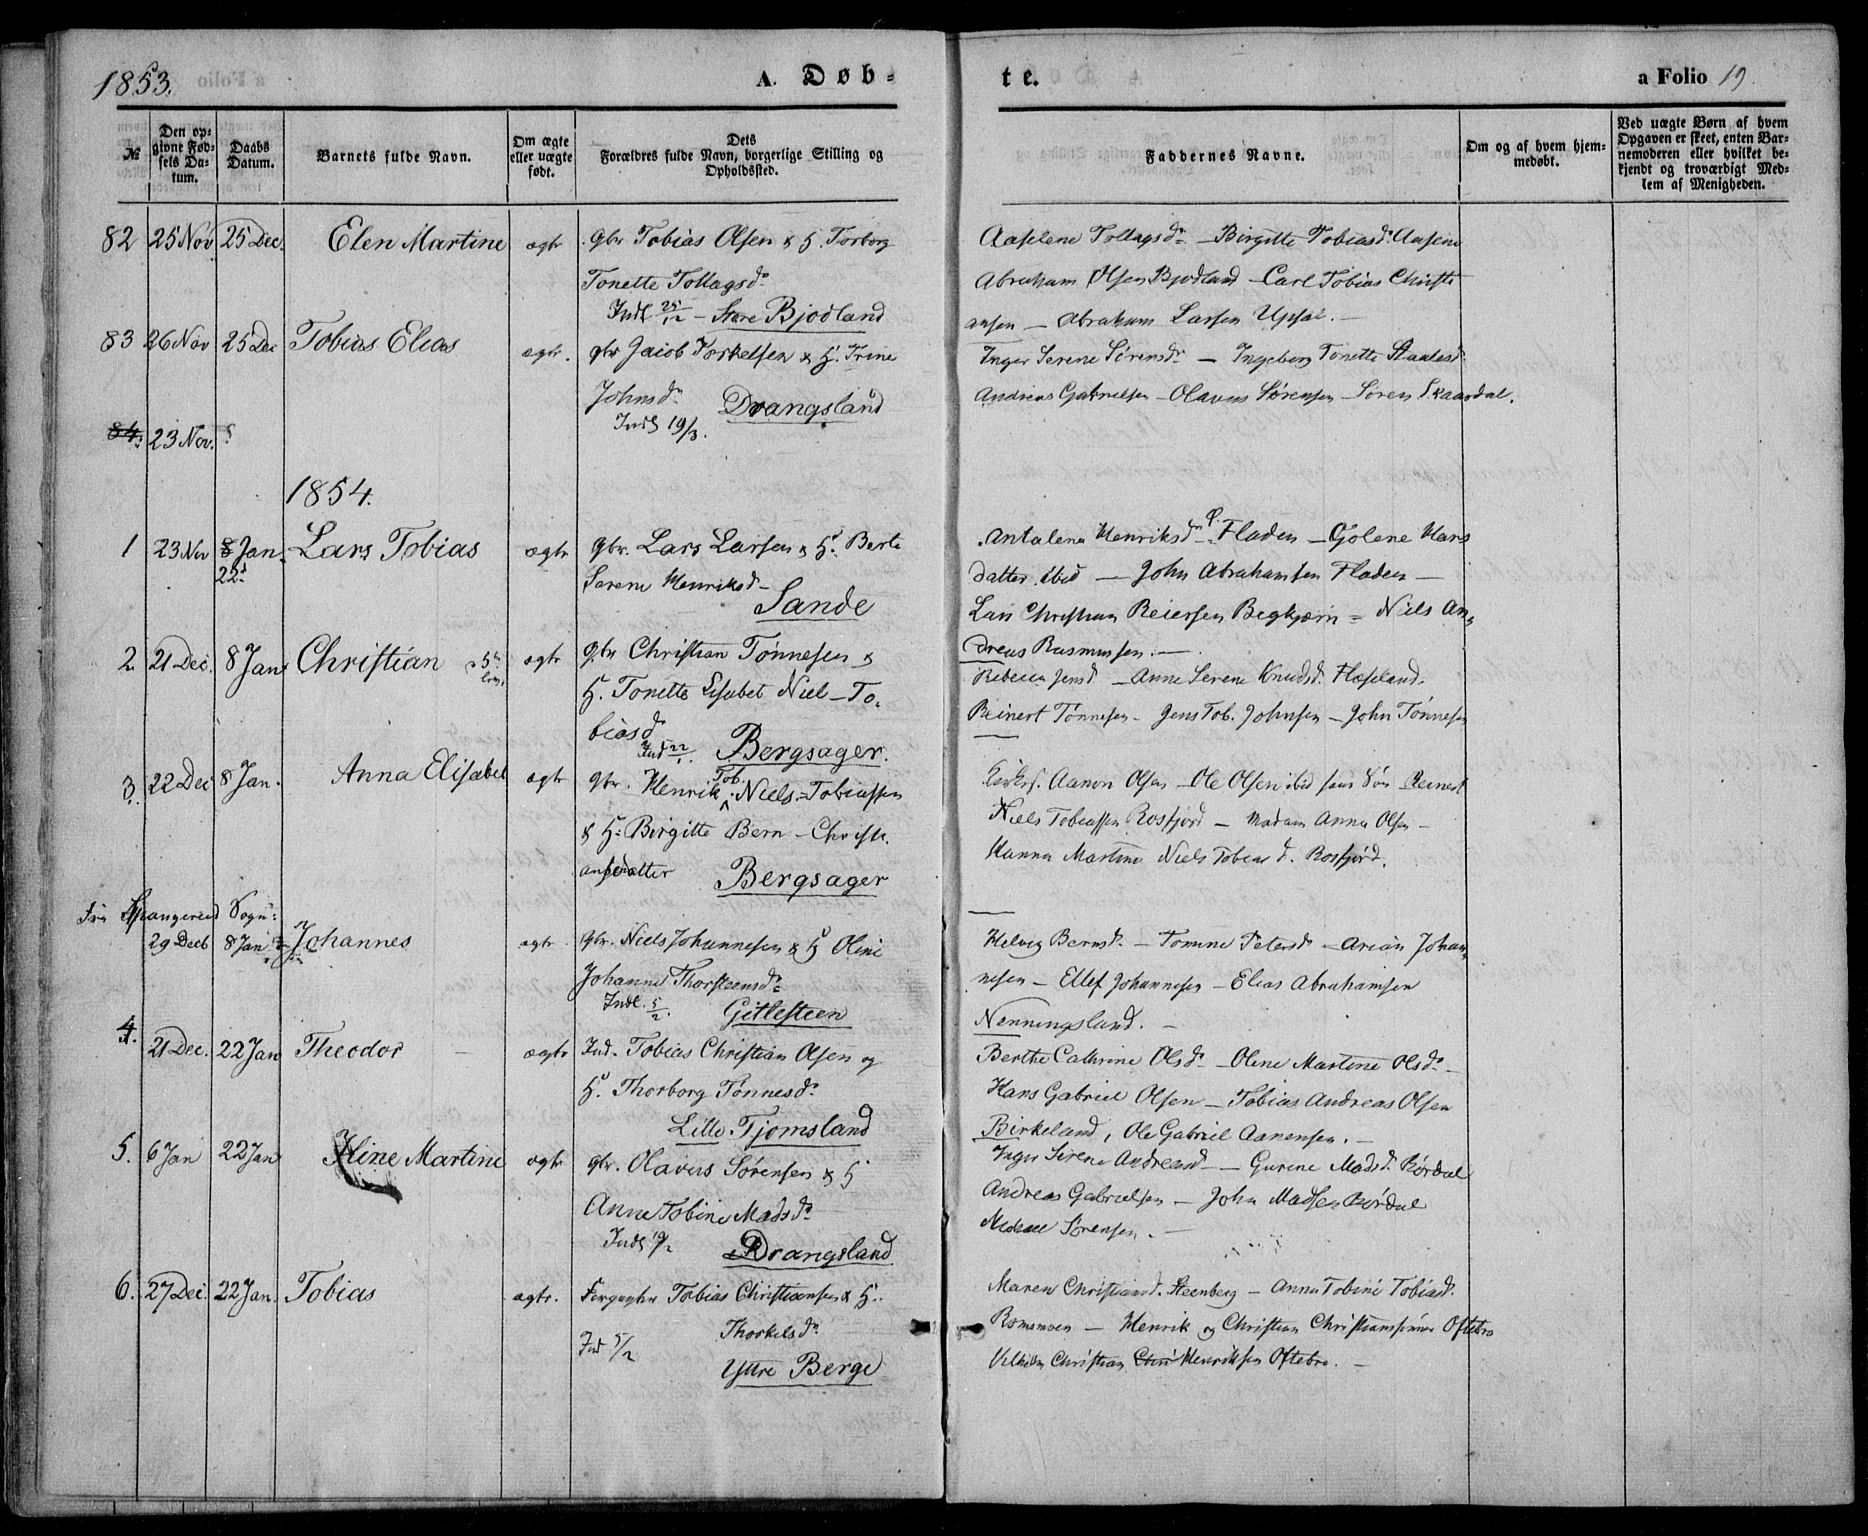 1853.
A. Døb-
te.
a Folio 19.
№
Den op-
givne Fød-
sels Da-
tum.
Daabs
Datum.
Barnets fulde Navn.
Om ægte
eller uægte
født.
Dets
Forældres fulde Navn, borgerlige Stilling og
Opholdssted.
Faddernes Navne.
Om og af hvem hjem-
medøbt.
Ved uægte Børn af hvem
Opgaven er skeet, enten Bar-
nemoderen eller hvilket be-
kjendt og troværdigt Med-
lem af Menigheden.
82 25 Nov 25 Dec. Elen Martine ægte Gbr Tobias Olsen & H. Torborg
Tonette Tollagsd.
Indl 25/12 - Store Bjodland
Aaselene Tollagsd. - Birgitte Tobiasd.
Abraham Olsen Bjodland - Carl Tobias Christi
ansen - Abraham Larsen Upsal. -
83 26 Nov 25 Dec Tobias Elias ægte. gbr Jacob Torkelsen & H. Trine
Johnsd.
Indl 19/3. Drangsland
Inger Serene Sørensd. - Ingeborg Tonette
Andreas Gabrielsen - Olavus Sørensen - Søren Skaardal.
84. 23 Nov.
1854.
1 23 Nov 8 Jan. Lars Tobias ægte Gbr. Lars Larsen & H. Berte
22d
Serene Henriksd.
Sande
Antalena Henriksd. Fladen - Golene Hans
datter ibid - John Abrahamsen Fladen -
Lars Christian Reiersen Begkjærn = Niels An-
dreas Rasmussen. -
2. 21 Dec. 8 Jan. Christian ægte gbr Christian Tønnesen &
H. Tonette Elisabet Niel-To-
biasd
Ind 22/1. Bergsager.
Rebecca Jensd. - Anne Serene Knudsd. Fløseland.
Reinert Tønnesen - Jens Tob. Johnsen - John Tønnesen
3. 22 Dec 8 Jan. Anna Elisabet ægte gbr. Henrik Tob. Niels-Tobiassen
& H. Birgitte Bern-Christi-
ansdatter Bergsager
Aanon Olsen - Ole Olsen ibid Reinert
Niels Tobiassen Rosfjord - Madam Anna Olsen -
Hanna Martine Niels Tobias d. Rosfjord.
Fra Spangereid Sogn:
29 Decb 8 Jan Johannes ægte. Gbr. Niels Johannesen & H Olini
Johanne Thorsteensd.
Indl. 5/2. Gitlesteen
Helvig Bernsd. - Tomine Petersd - Arian Johan-
nesen - Ellef Johannesen - Elias Abrahamsen
Nenningsland. -
4. 21 Dec. 22 Jan Theodor ægte Ind. Tobias Christian Olsen og
H. Thorborg Tønnesd.
Lille Tjomsland
Berthe Cathrine Olsd. - Oline Martine Olsd. -
Hans Gabriel Olsen - Tobias Andreas Olsen
Birkeland, Ole Gabriel Aanensen. -
5. 6 Jan 22 Jan Martine ægte gbr. Olavus Sørensen & H
Anne Tobine Madsd.
Indl 19/2 Drangsland
Inger Serene Andreasd - Gurine Madsd. Rørdal
Andreas Gabrielsen - John Madsen Rørdal
Sørensen. -
6. 27 Dec. 22 Jan. Tobias ægte. Tobias Christiansen & H.
Thorkelsd.
Ind 5/2 Yttre Berge
Maren Christiansd. Steenberg - Anna Tobine Tobiasd.
Romsmoen - Henrik og Christian Oftebro
Vilhelm Christian Henriksen Oftebro. -